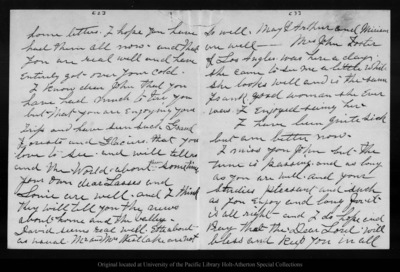 some letters. I hope you have
had them all now. and that
you are real well and have
entirely got over your cold.
I know dear John that you
have had much to tire you
but that you are enjoying your
trip and have seen such grand
forests and Glaciers that you
love to see. and will tell us
and the World about something
Your own dear Lasses and
Louie are well. and I think
they will tell you the news
about home and the valley.
David seems real well. & about
as usual. Mr and Mrs not
so well. Maggie Arthur and
are well — Mrs John Foster
of Los Angles was here a
she came to see me a little while
she looks well and is the same
frank good woman she ever
was I enjoyed seeing her
I have been quite sick
but am better now.
I miss you John but the
time is passing, and as long
as you are well and your
studies pleasant and such
as you enjoy and long for it
is all right and I do hope and
Pray that the Dear Lord will
bless and keep you in all
Original located at University of the Pacific Library Holt-Atherton Special Collections